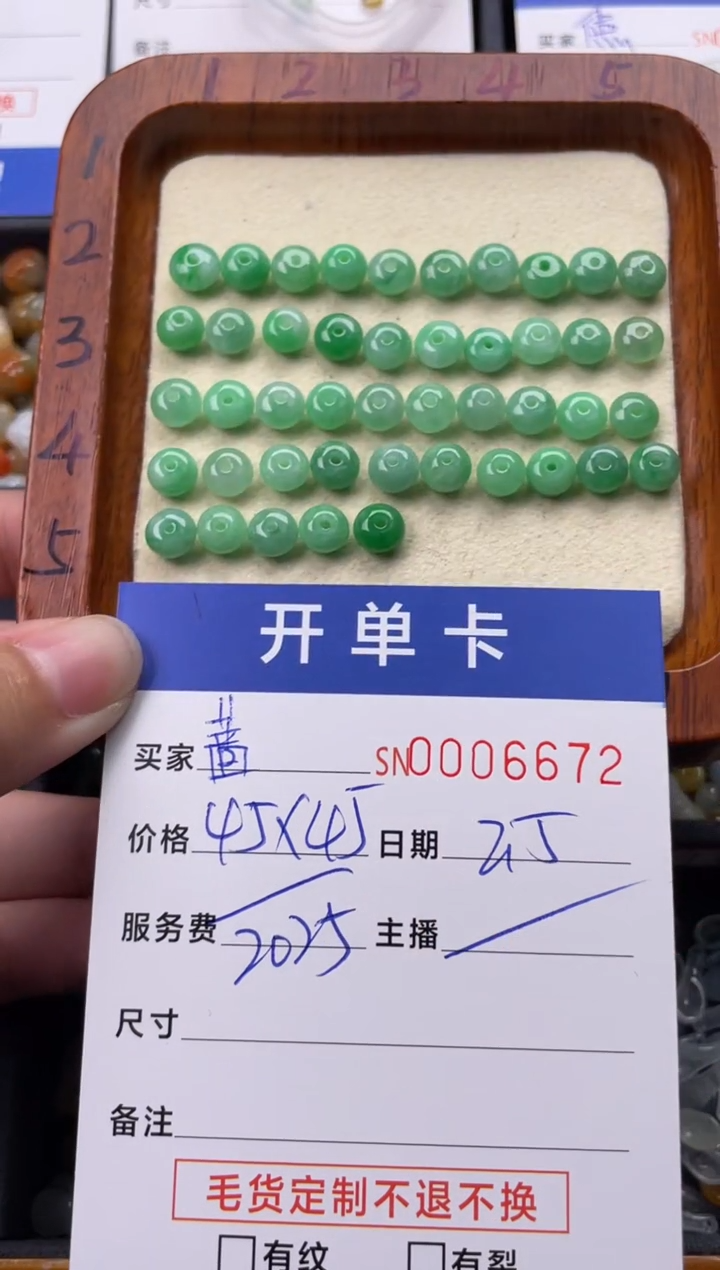 尺寸
备注
买家 焦 SN
换
1 2 3 4 5
1
2
3
4
5
开单卡
买家 SN0006672
价格 45X45 日期 25
服务费 2025 主播
尺寸
备注
毛货定制不退不换
有纹 有裂